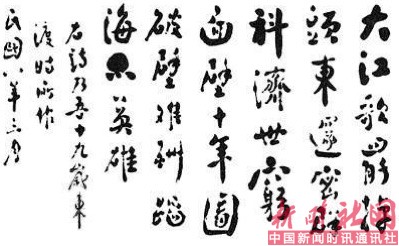 大江歌罷掉
頭東邃密群
科濟世窮
面壁十年圖
破壁難酬蹈
海亦英雄
右詩乃吾十九歲東
渡時所作
民國八年三月
新时社网
中国新闻时讯通讯社